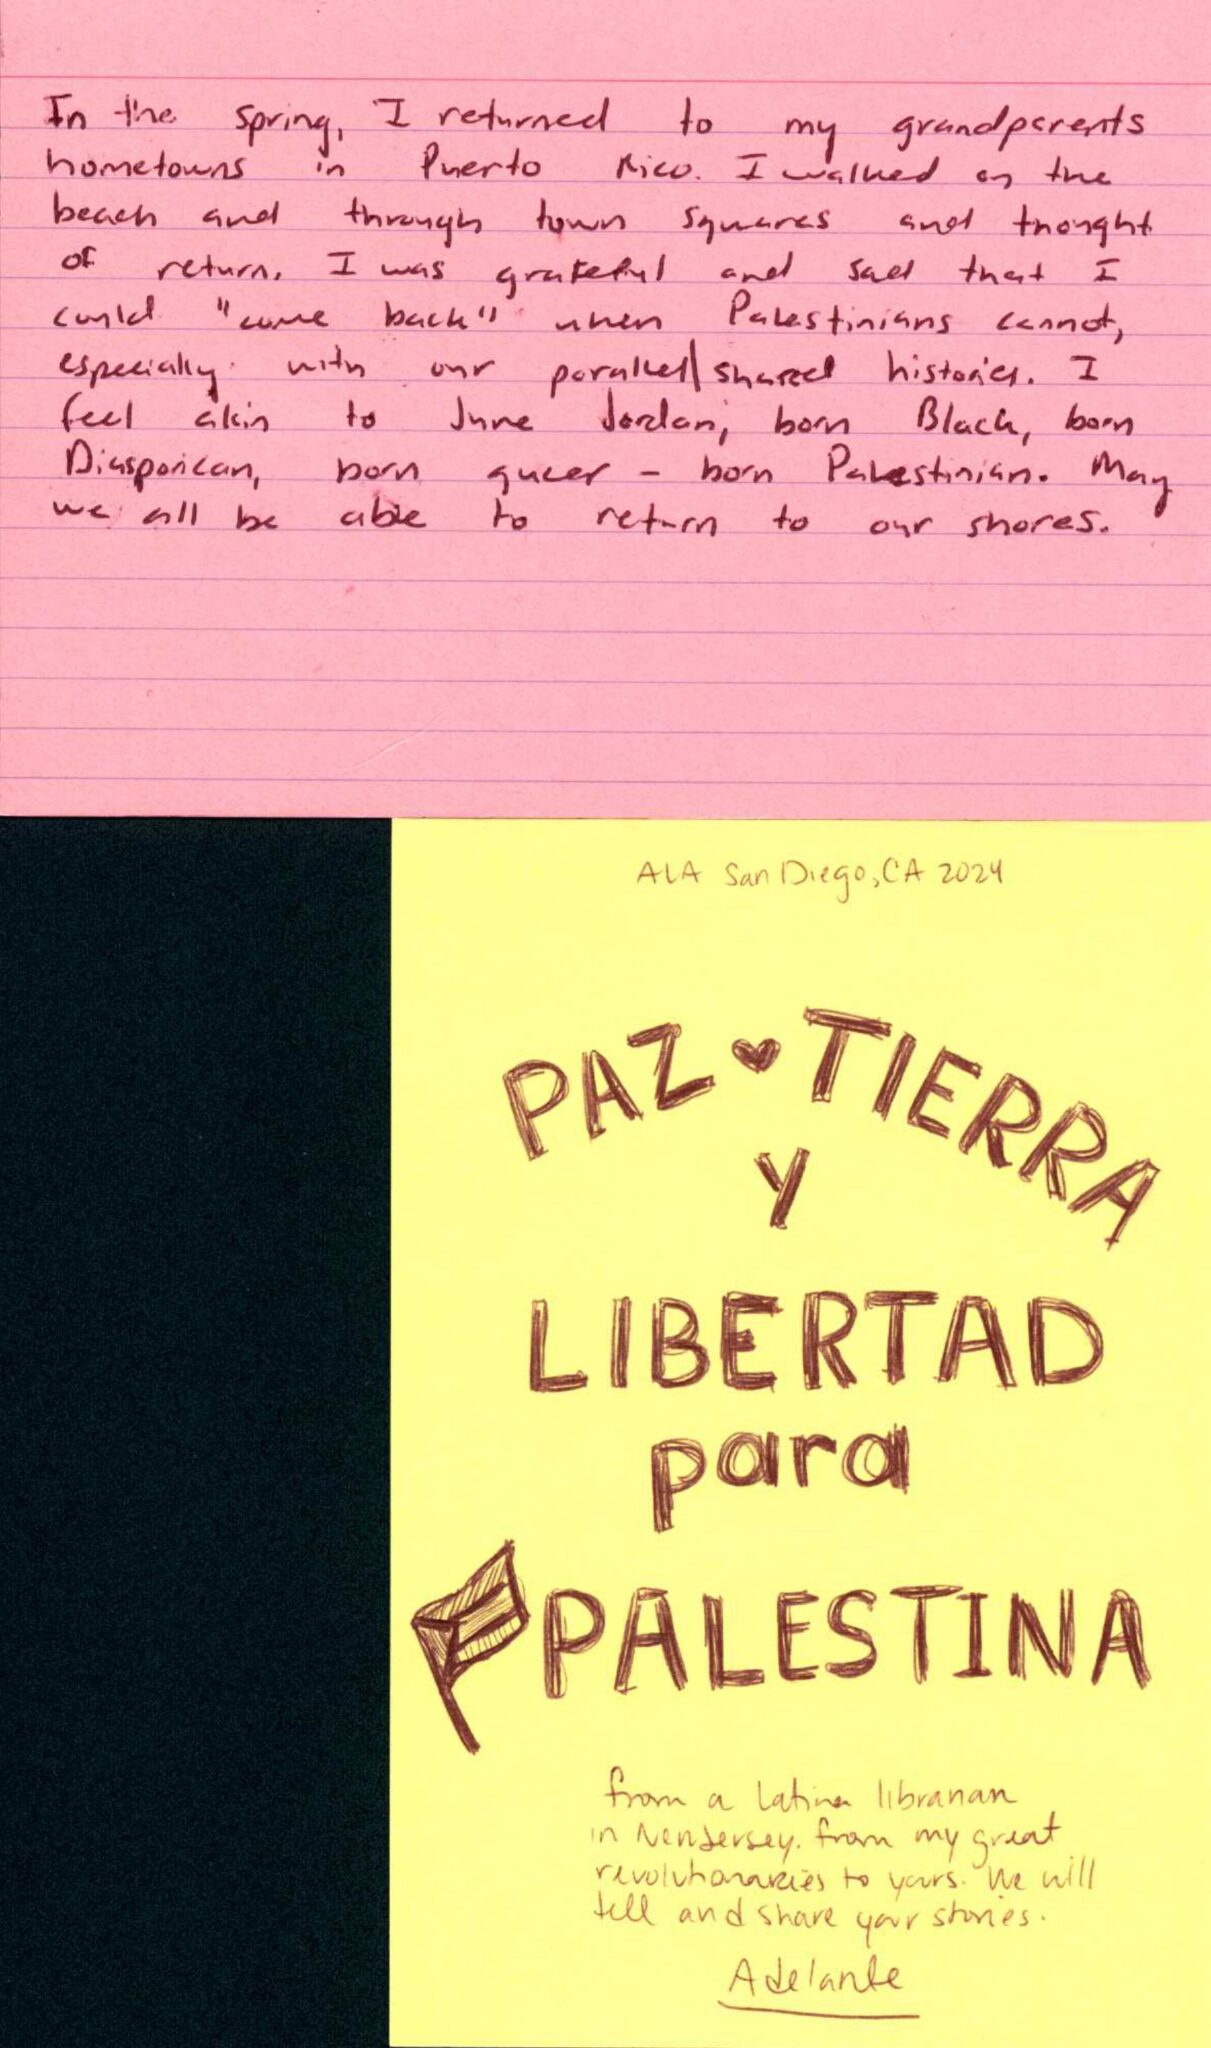 In the spring, I returned to my grandparents
hometowns in Puerto Rico. I walked on the
beach and through town squares and thought
of return. I was grateful and sad that I
could "come back" when Palestinians cannot,
especially with our parallel\shared histories. I
feel akin to June Jordan, born Black, born
Diasporican, born queer - born Palestinian. May
we all be able to return to our shores.
ALA San Diego, CA 2024
PAZ TIERRA
Y
LIBERTAD
para
PALESTINA
from a Latina librarian
in New Jersey. from my great
revolutionaries to yours. We will
tell and share your stories.
Adelante